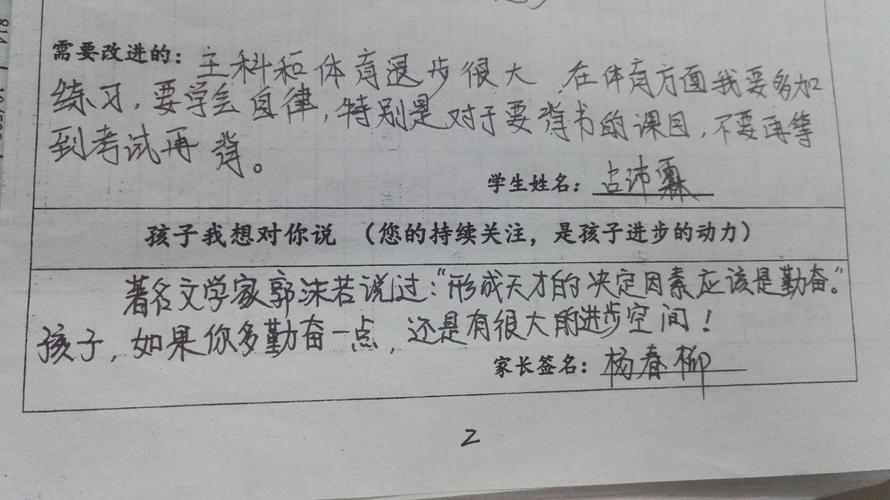 需要改进的：主科和体育退步很大，在体育方面我要多加
练习，要学会自律，特别是对于要背书的课目，不要再等
到考试再背。
学生姓名：占沛霖
孩子我想对你说（您的持续关注，是孩子进步的动力）
著名文学家郭沫若说过：“形成天才的决定因素应该是勤奋。”
孩子，如果你多勤奋一点，还是有很大的进步空间！
家长签名：杨春柳
2